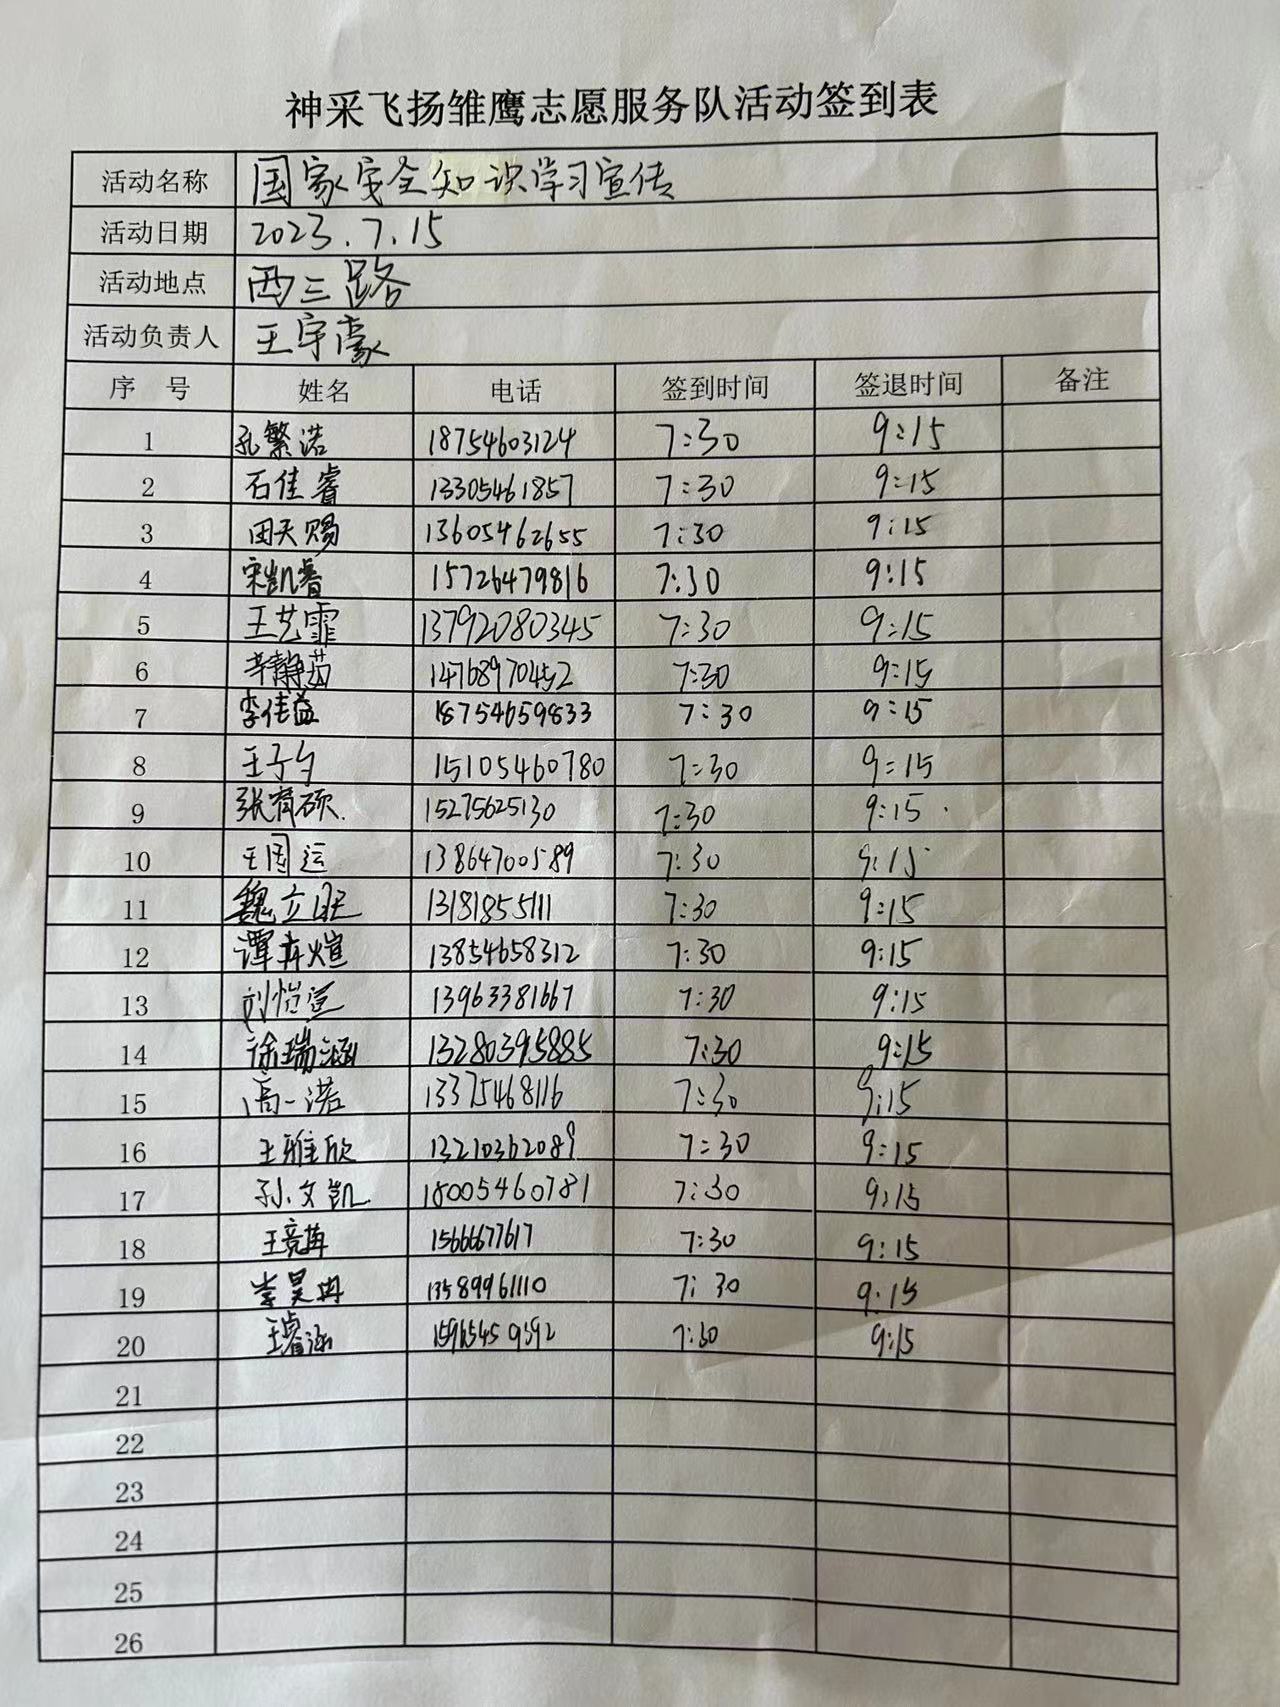 神采飞扬雏鹰志愿服务队活动签到表
活动名称 国家安全知识学习宣传
活动日期 2023.7.15
活动地点 西三路
活动负责人 王宇豪
序 号 姓名 电话 签到时间 签退时间 备注
1 孔繁诺 18754603124 7:30 9:15
2 石佳睿 13305461857 7:30 9:15
3 田天赐 13605462655 7:30 9:15
4 宋凯睿 15726479816 7:30 9:15
5 王艺霏 13792080345 7:30 9:15
6 辛静茹 14768970452 7:30 9:15
7 李佳益 18754659833 7:30 9:15
8 王子夕 15105460780 7:30 9:15
9 张育硕 15275625130 7:30 9:15
10 王国运 13864700589 7:30 9:15
11 魏立旺 13181855111 7:30 9:15
12 谭冉煊 13854658312 7:30 9:15
13 刘恺萱 13963381667 7:30 9:15
14 徐瑞涵 13280395885 7:30 9:15
15 高一诺 13375468116 7:30 9:15
16 王雅欣 13210362089 7:30 9:15
17 孙文凯 18005460781 7:30 9:15
18 王竟苒 15666677617 7:30 9:15
19 李昊冉 13589961110 7:30 9:15
20 王睿涵 7:30 9:15
21
22
23
24
25
26